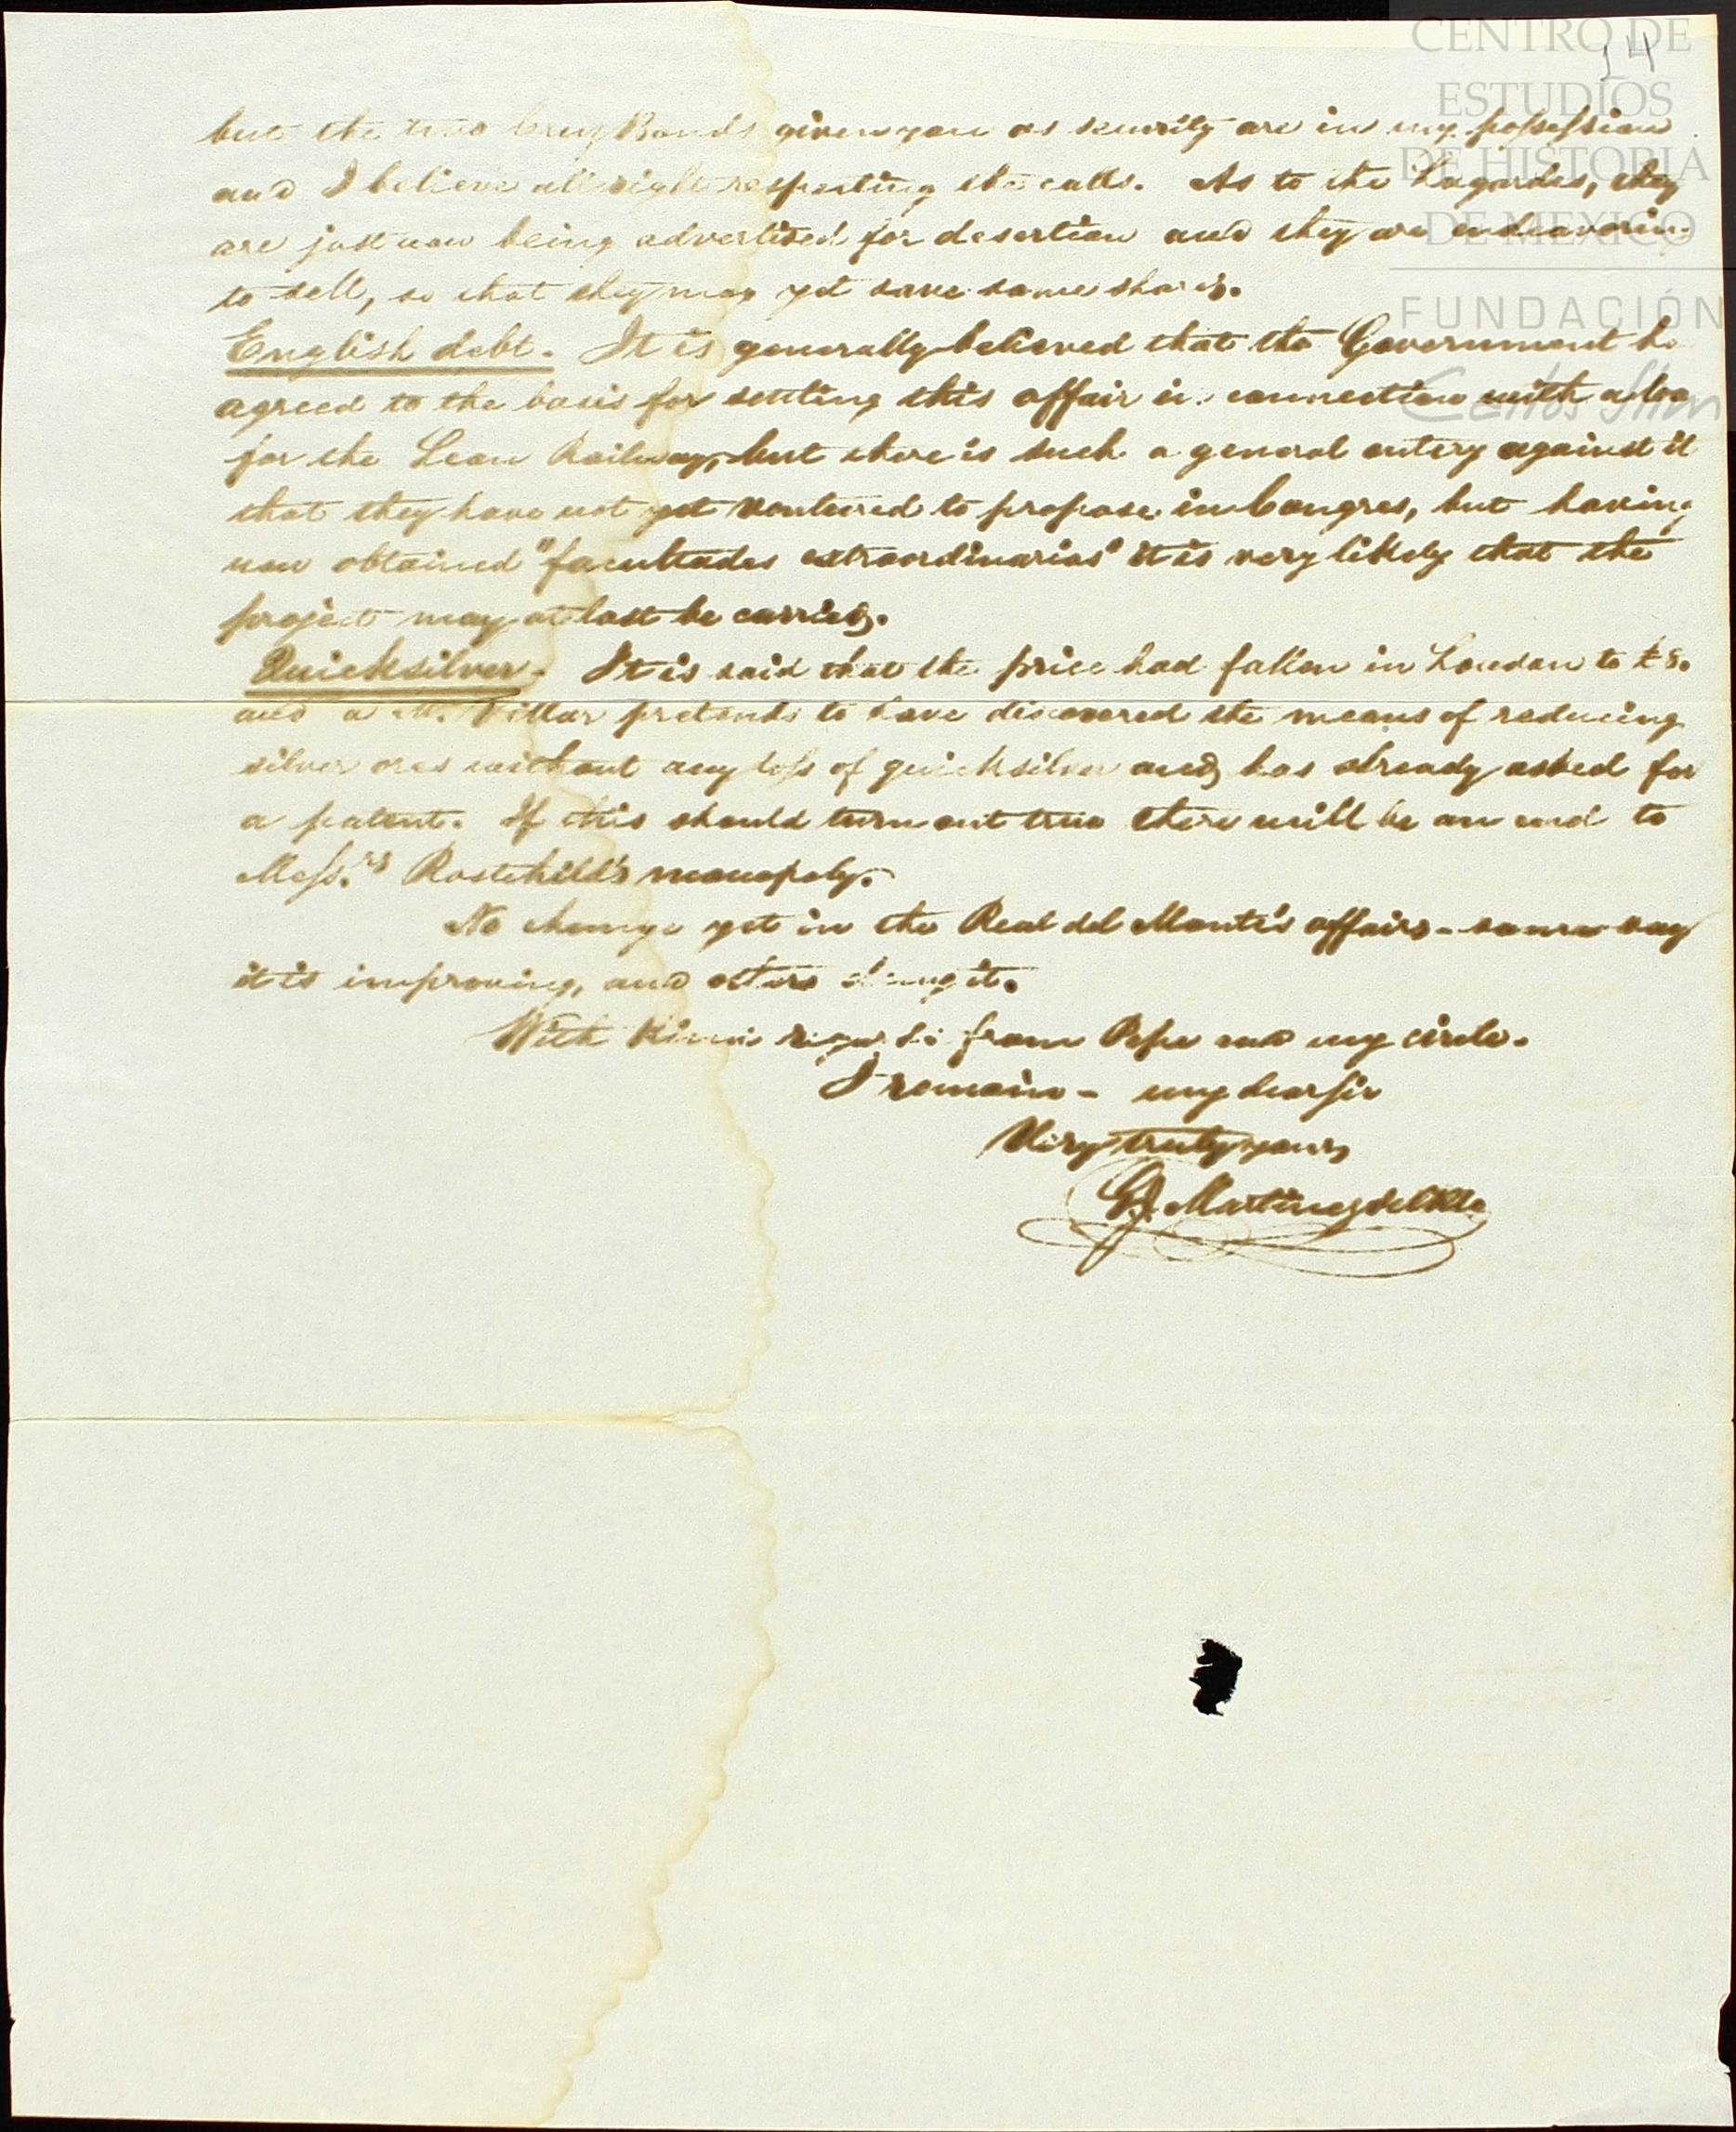 14
CENTRO DE
ESTUDIOS
DE HISTORIA
DE MEXICO
FUNDACIÓN
Carlos Slim
but the two Cruz Bonds given you as security are in my possession
and I believe all right respecting the calls. As to the Lagardes, they
are just now being advertised for desertion and they are endeavoring
to sell, so that they may yet save some shares.
English debt. It is generally believed that the Government ha
agreed to the basis for settling this affair in connection with a loa
for the Leon Railway, but there is such a general outcry against it
that they have not yet ventured to propose in Congres, but having
now obtained "facultades extraordinarias" it is very likely that the
project may at last be carried.
Quicksilver. It is said that the price had fallen in London to £8.
and a Mr. Villar pretends to have discovered the means of reducing
silver ores without any loss of quicksilver and has already asked for
a patent. If this should turn out true there will be an end to
Mess.rs Rostchild's monopoly.
No change yet in the Real del Monte's affairs - some say
it is improving, and others deny it.
With kind regards from Pepe and my circle.
I remain - my dear sir
Very truly yours
G. Martinez del Rio